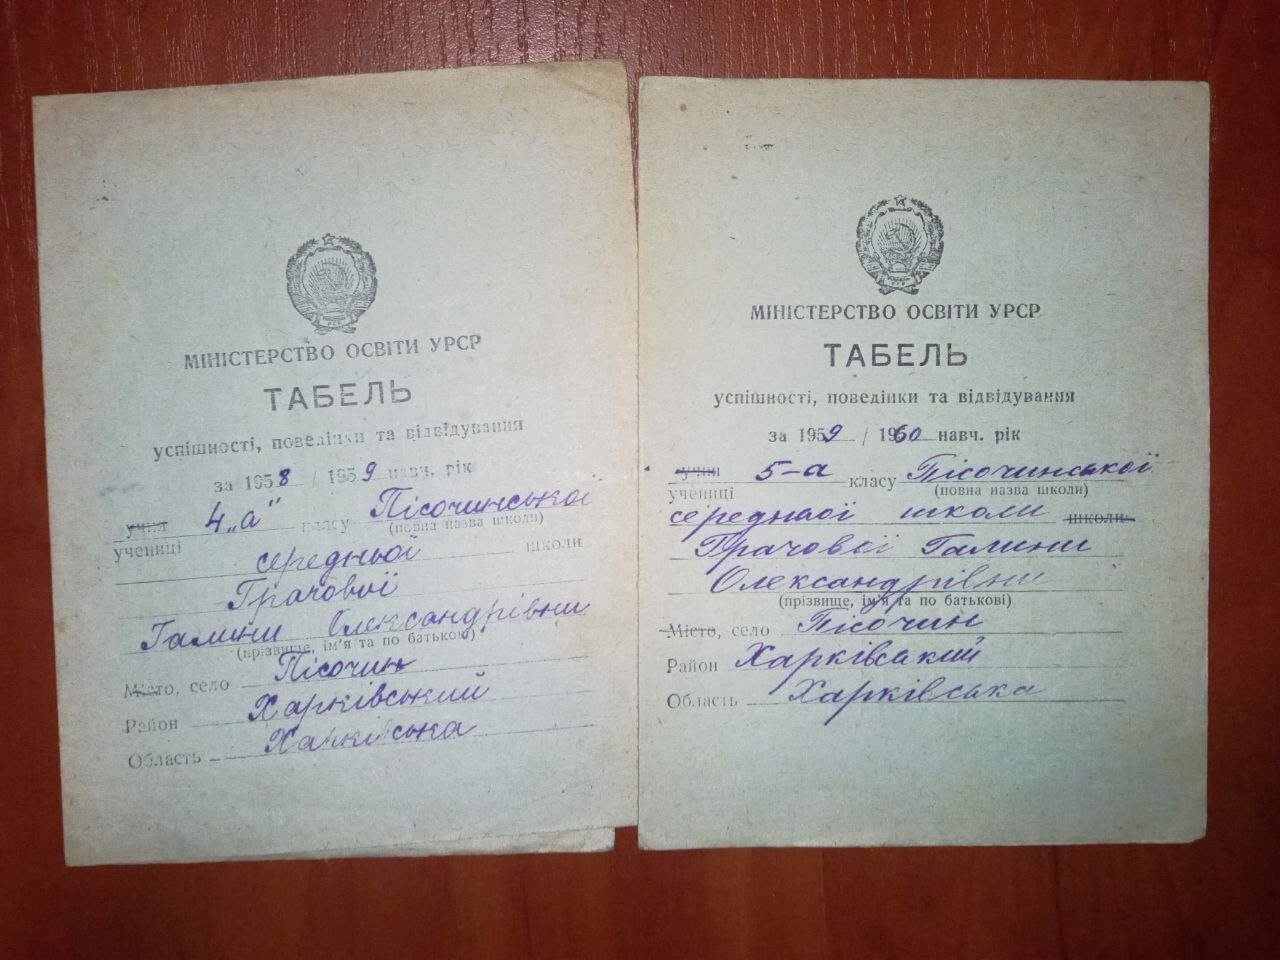 МІНІСТЕРСТВО ОСВІТИ УРСР
ТАБЕЛЬ
успішності, поведінки та відвідування
за 1958 / 1959 навч. рік
учня
учениці 4 „а" класу Пісочинської
(повна назва школи)
середньої школи
Грачової
Галини Олександрівни
(прізвище, ім'я та по батькові)
Місто, село Пісочин
Район Харківський
Область Харківська
МІНІСТЕРСТВО ОСВІТИ УРСР
ТАБЕЛЬ
успішності, поведінки та відвідування
за 1959 / 1960 навч. рік
учня
учениці 5-а класу Пісочинської
(повна назва школи)
середньої школи школи
Грачової Галини
Олександрівни
(прізвище, ім'я та по батькові)
Місто, село Пісочин
Район Харківський
Область Харківська